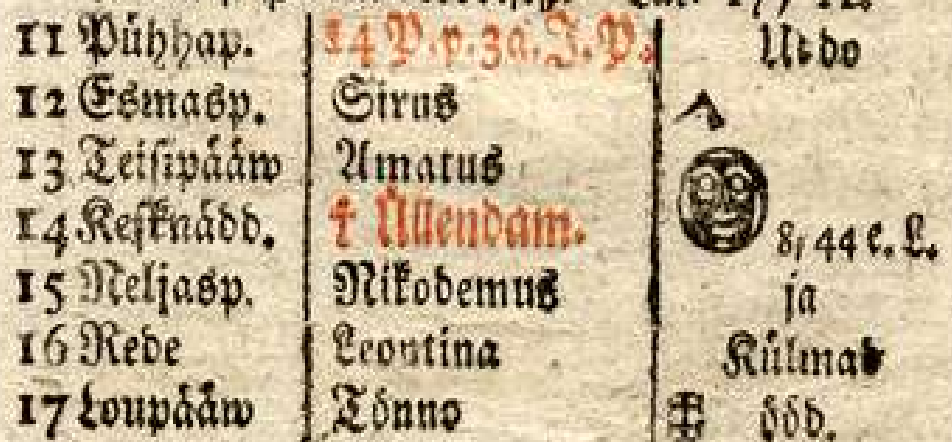 11 Pühhap. 14 P. p. 3a. J. P. Utdo
12 Esmasp. Sirus
13 Teisipääw Amatus
14 Kesknädd. † Üllendam. 8, 44 e. L.
15 Neljasp. Nikodemus ja
16 Rede Leontina Külmad
17 Loupääw Tönno ööd.